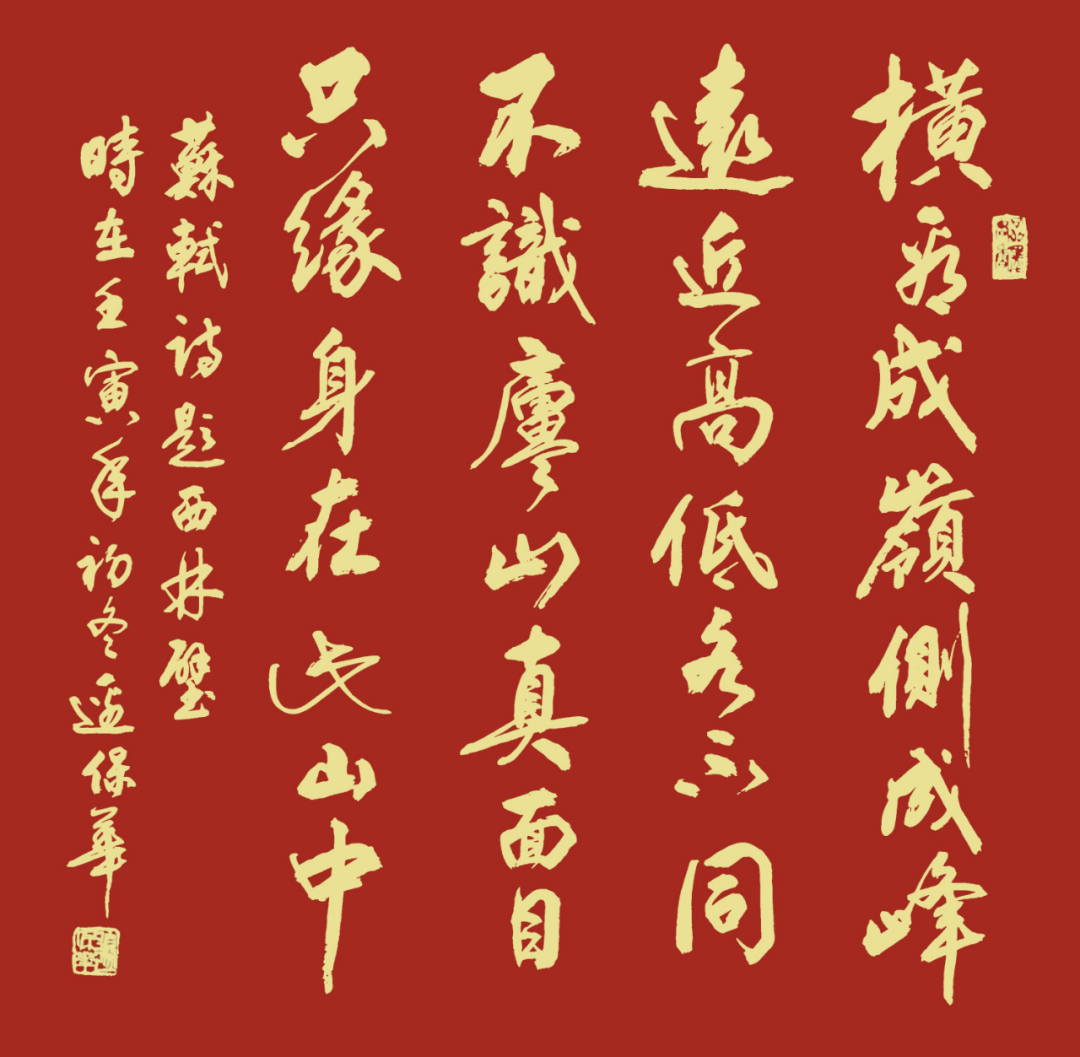 橫看成嶺側成峰
遠近高低各不同
不識廬山真面目
只緣身在此山中
蘇軾詩題西林壁
時在壬寅年初冬保華